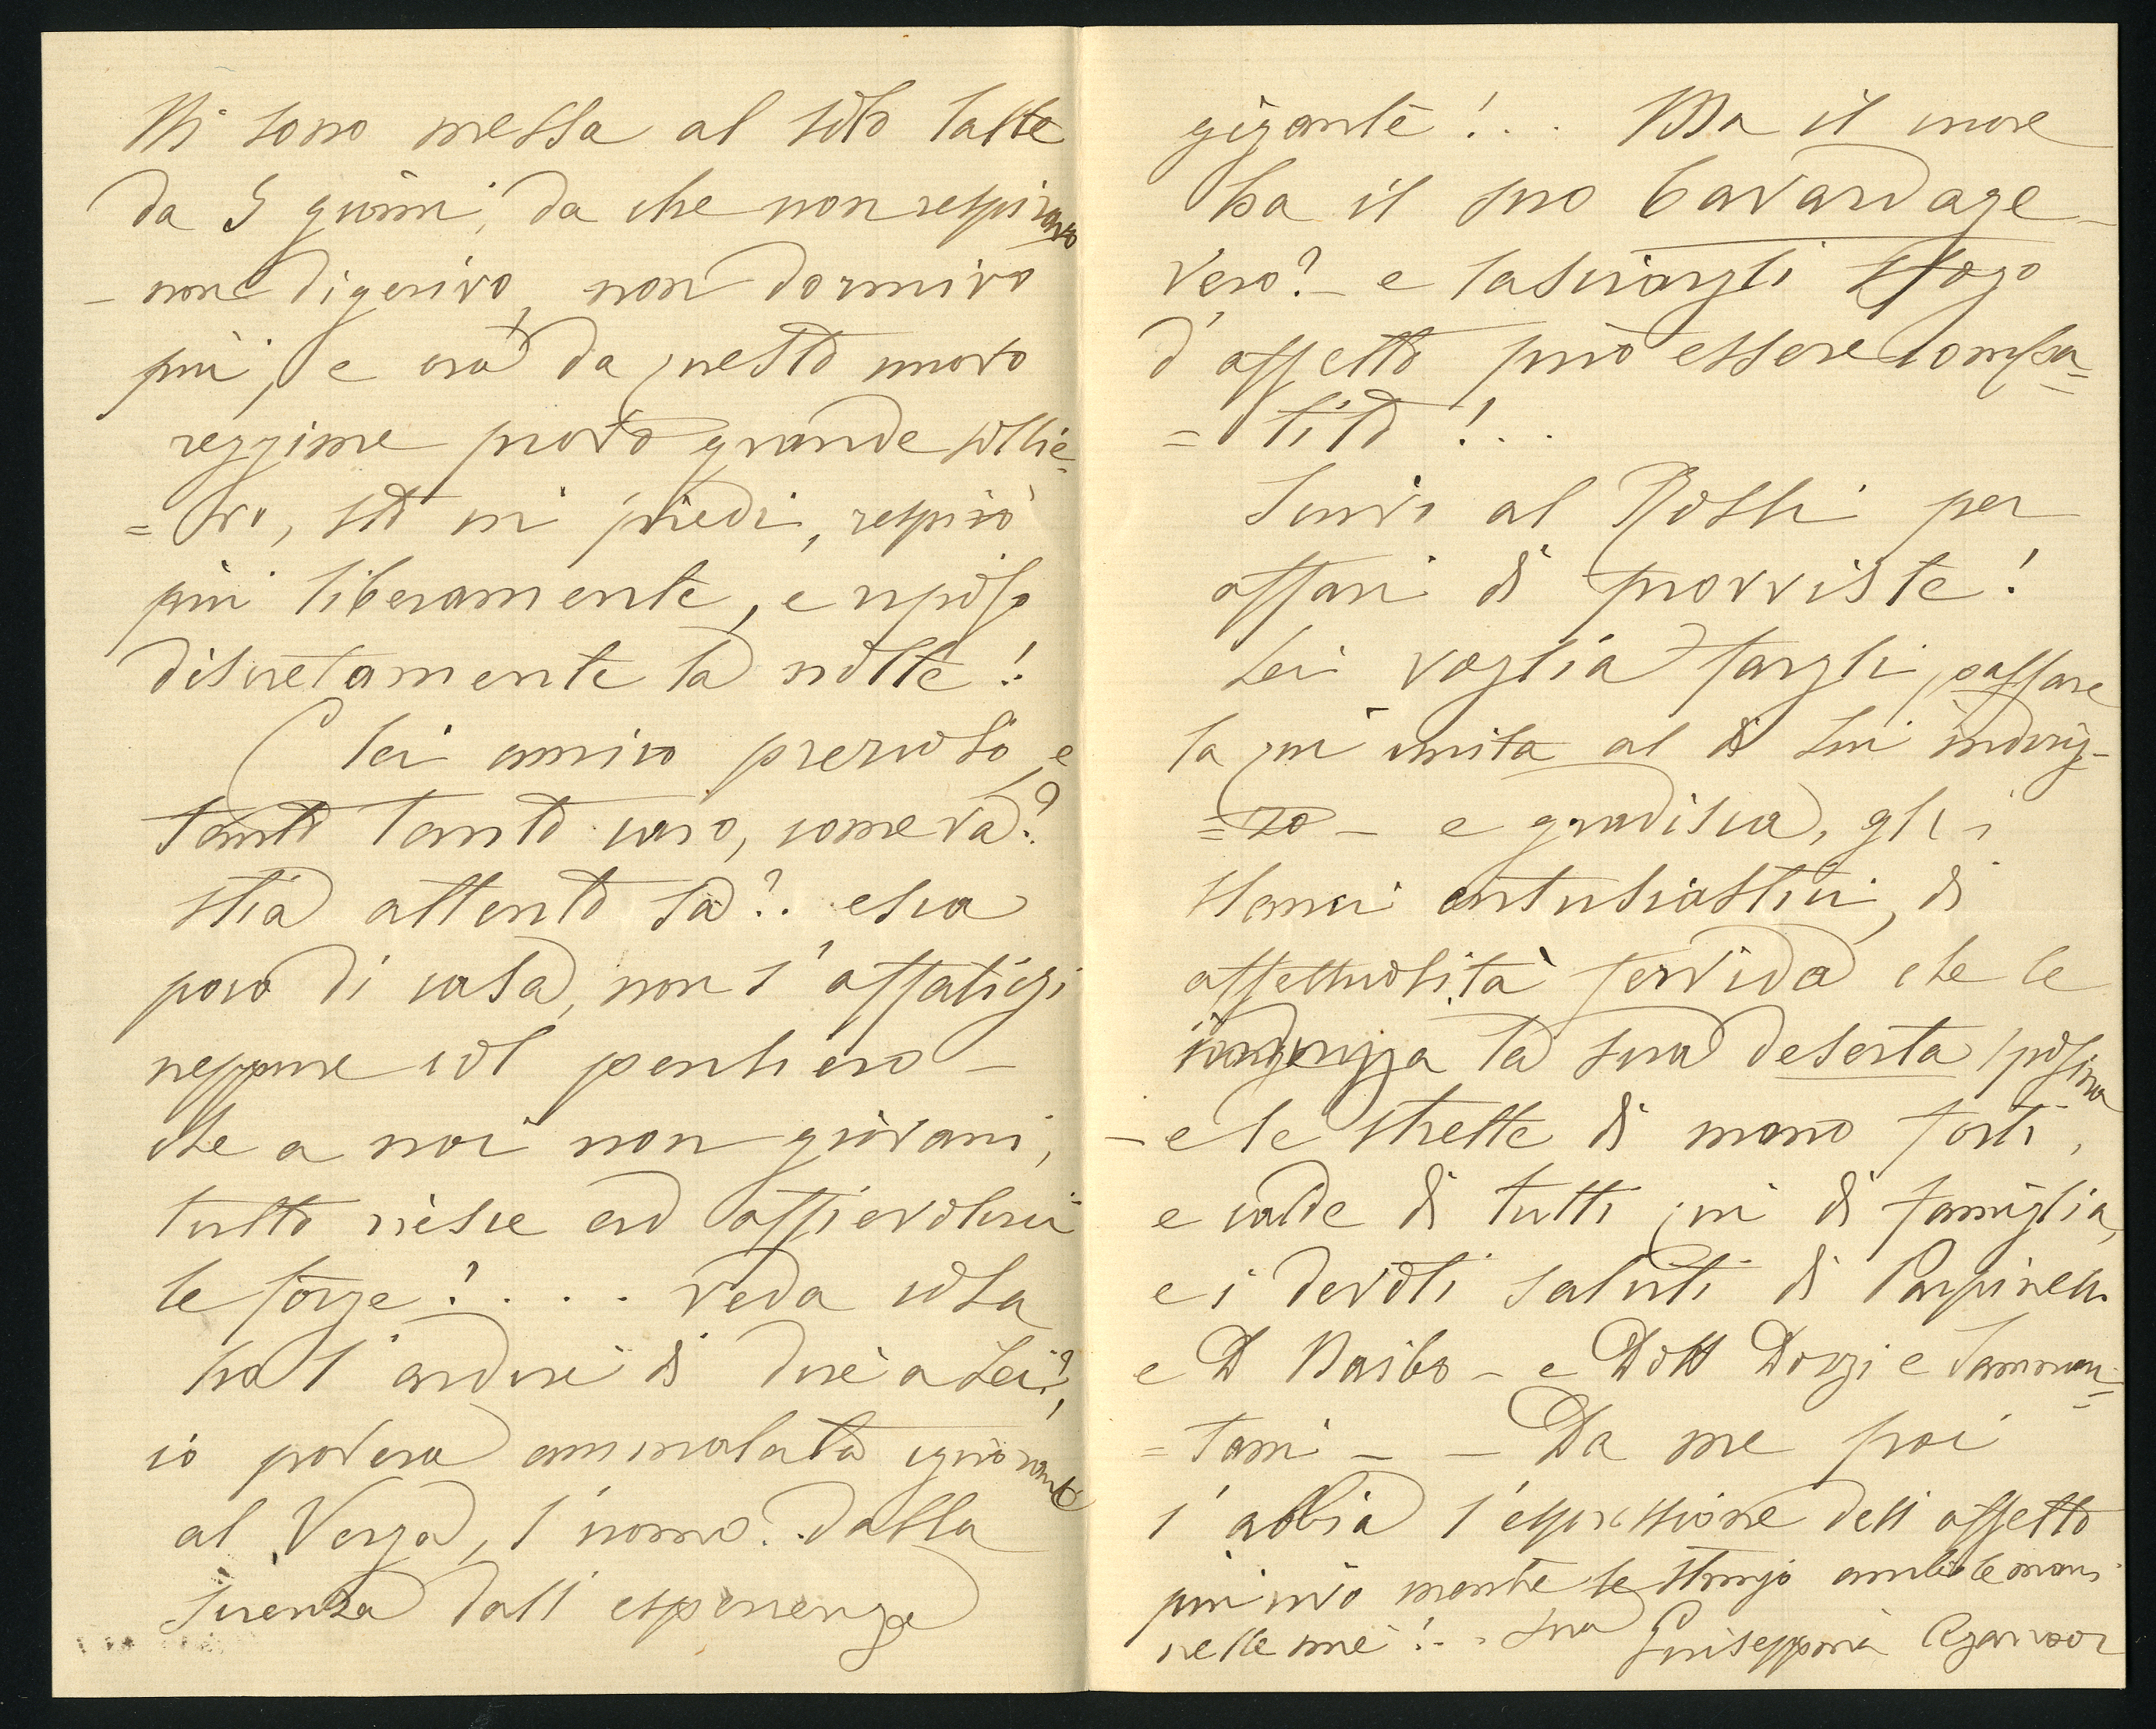 Mi sono messa al solo latte
da 5 giorni, da che non respiravo
- non digerivo, non dormivo
più, e ora da questo nuovo
reggime provo grande sollie=
=vo, sto in piedi, respiro
più liberamente, e riposo
discretamente la notte!
E lei amico prezioso, e
tanto tanto caro, come va?
stia attento sa?.. esca
poco di casa, non s'affatichi
neppure col pensiero -
che a noi non giovani,
tutto riesce ad affievolirci
le forze!.... veda cosa
ha l'ardire di dire a Lei?,
io povera ammalata ignorante
al Verga, l'uomo dalla
scienza dall'esperienza
gigante!... Ma il cuore
ha il suo bavardage -
vero? - e lasciargli sfogo
d'affetto può essere compa=
=tito!...
Scrivo al Rossi per
affari di provviste!
Lei voglia fargli passare
la qui unita al di Lui indiriz=
=zo - e gradisca, gli
slanci entusiastici, di
affettuosità fervida che le
la sua deserta sposina
- e le strette di mano forti,
e calde di tutti qui di famiglia,
e i devoti saluti di
e D Barbo - e Dott Dozzi e Tamman=
=tani - - Da me poi
s'abbia l'espressione dell'affetto
più vivo mentre le stringo ambe le mani
nelle mie!.. Sua Giuseppina Aganoor